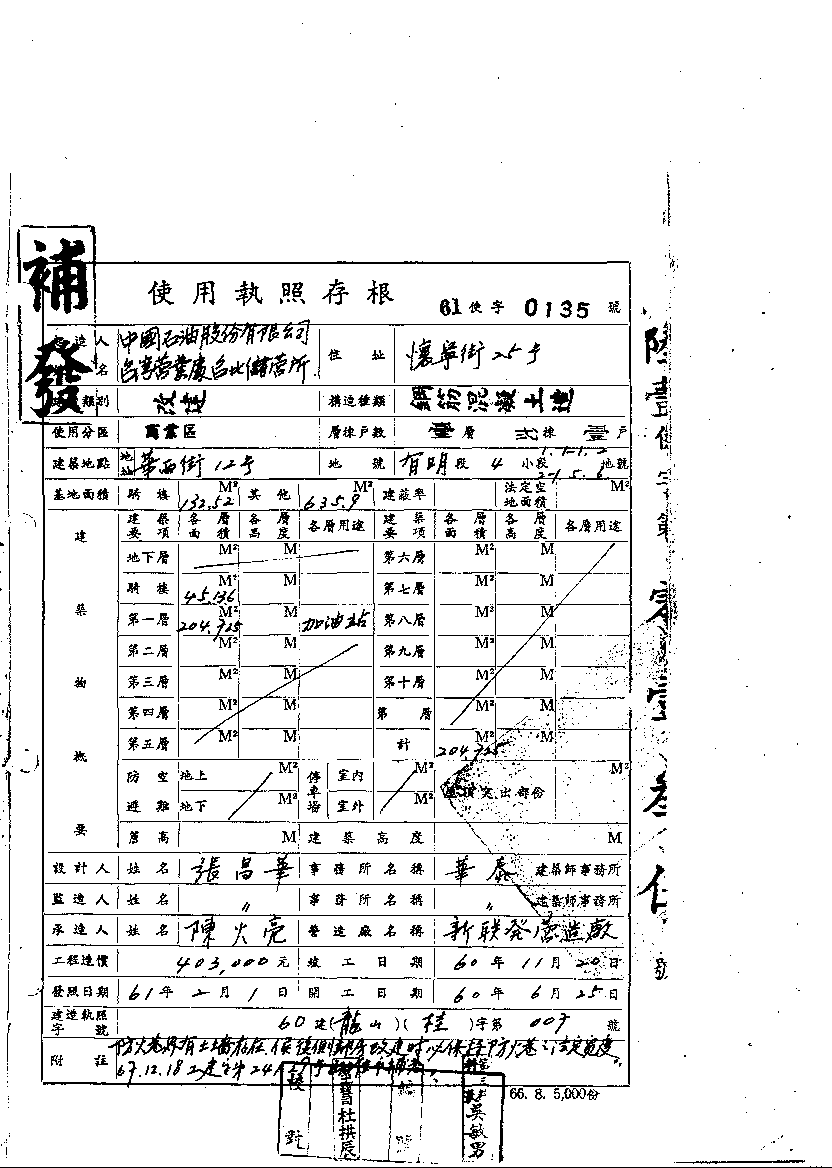 補發
使用執照存根
61使字 0135 號
造人名 中國石油股份有限公司 台灣營業處台北儲營所 住址 懷寧街25号
類別 改建 構造種類 鋼筋混凝土造
使用分區 商業區 層棟戶數 壹層 弍棟 壹戶
建築地點 地址 華西街12号 地號 有明段 4 小段 地號
基地面積 騎樓 132.52 M² 其他 635.9 M² 建蔽率 法定空地面積 M²
建築物概要
建築要項 各層面積 各層高度 各層用途 建築要項 各層面積 各層高度 各層用途
地下層 M² M 第六層 M² M
騎樓 45.136 M² M 第七層 M² M
第一層 204.725 M² M 加油站 第八層 M² M
第二層 M² M 第九層 M² M
第三層 M² M 第十層 M² M
第四層 M² M 第 層 M² M
第五層 M² M 計 204.725 M² M
防空避難 地上 M² 停車場 室內 M² 突出部份 M²
地下 M² 室外 M²
簷高 M 建築高度 M
設計人 姓名 張昌華 事務所名稱 華泰 建築師事務所
監造人 姓名 〃 事務所名稱 〃 建築師事務所
承造人 姓名 陳火亮 營造廠名稱 新联發營造廠
工程造價 403,000元 竣工日期 60年11月20日
發照日期 61年2月1日 開工日期 60年6月25日
建造執照字號 60建(龍山)(桂)字第 007 號
附註 防火巷界有土牆存在
67.12.18
校對
杜拱辰
吳敏男
66. 8. 5,000份